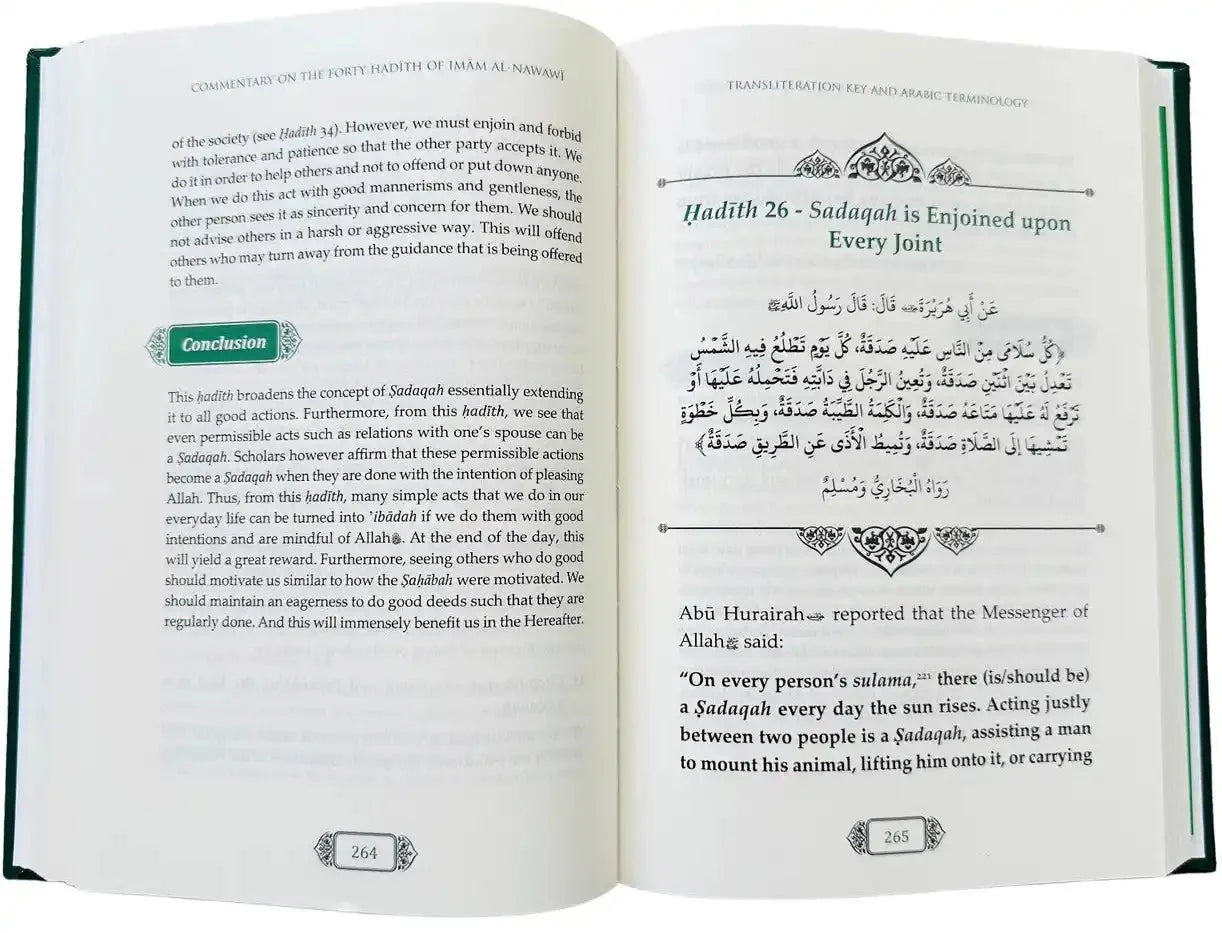 COMMENTARY ON THE FORTY HADĪTH OF IMĀM AL-NAWAWĪ
of the society (see Ḥadīth 34). However, we must enjoin and forbid
with tolerance and patience so that the other party accepts it. We
do it in order to help others and not to offend or put down anyone.
When we do this act with good mannerisms and gentleness, the
other person sees it as sincerity and concern for them. We should
not advise others in a harsh or aggressive way. This will offend
others who may turn away from the guidance that is being offered
to them.
Conclusion
This ḥadīth broadens the concept of Ṣadaqah essentially extending
it to all good actions. Furthermore, from this ḥadīth, we see that
even permissible acts such as relations with one's spouse can be
a Ṣadaqah. Scholars however affirm that these permissible actions
become a Ṣadaqah when they are done with the intention of pleasing
Allah. Thus, from this ḥadīth, many simple acts that we do in our
everyday life can be turned into 'ibādah if we do them with good
intentions and are mindful of Allah. At the end of the day, this
will yield a great reward. Furthermore, seeing others who do good
should motivate us similar to how the Ṣaḥābah were motivated. We
should maintain an eagerness to do good deeds such that they are
regularly done. And this will immensely benefit us in the Hereafter.
264
TRANSLITERATION KEY AND ARABIC TERMINOLOGY
Ḥadīth 26 - Sadaqah is Enjoined upon
Every Joint
عَنْ أَبِي هُرَيْرَةَ قَالَ: قَالَ رَسُولُ اللَّهِ ﷺ
﴿كُلُّ سُلَامَى مِنَ النَّاسِ عَلَيْهِ صَدَقَةٌ، كُلَّ يَوْمٍ تَطْلُعُ فِيهِ الشَّمْسُ
تَعْدِلُ بَيْنَ اثْنَيْنِ صَدَقَةٌ، وَتُعِينُ الرَّجُلَ فِي دَابَّتِهِ فَتَحْمِلُهُ عَلَيْهَا أَوْ
تَرْفَعُ لَهُ عَلَيْهَا مَتَاعَهُ صَدَقَةٌ، وَالْكَلِمَةُ الطَّيِّبَةُ صَدَقَةٌ، وَبِكُلِّ خَطْوَةٍ
تَمْشِيهَا إِلَى الصَّلَاةِ صَدَقَةٌ، وَتُمِيطُ الْأَذَى عَنِ الطَّرِيقِ صَدَقَةٌ﴾
رَوَاهُ الْبُخَارِيُّ وَمُسْلِمٌ
Abū Hurairah reported that the Messenger of
Allahﷺ said:
"On every person's sulama,²²¹ there (is/should be)
a Ṣadaqah every day the sun rises. Acting justly
between two people is a Ṣadaqah, assisting a man
to mount his animal, lifting him onto it, or carrying
265